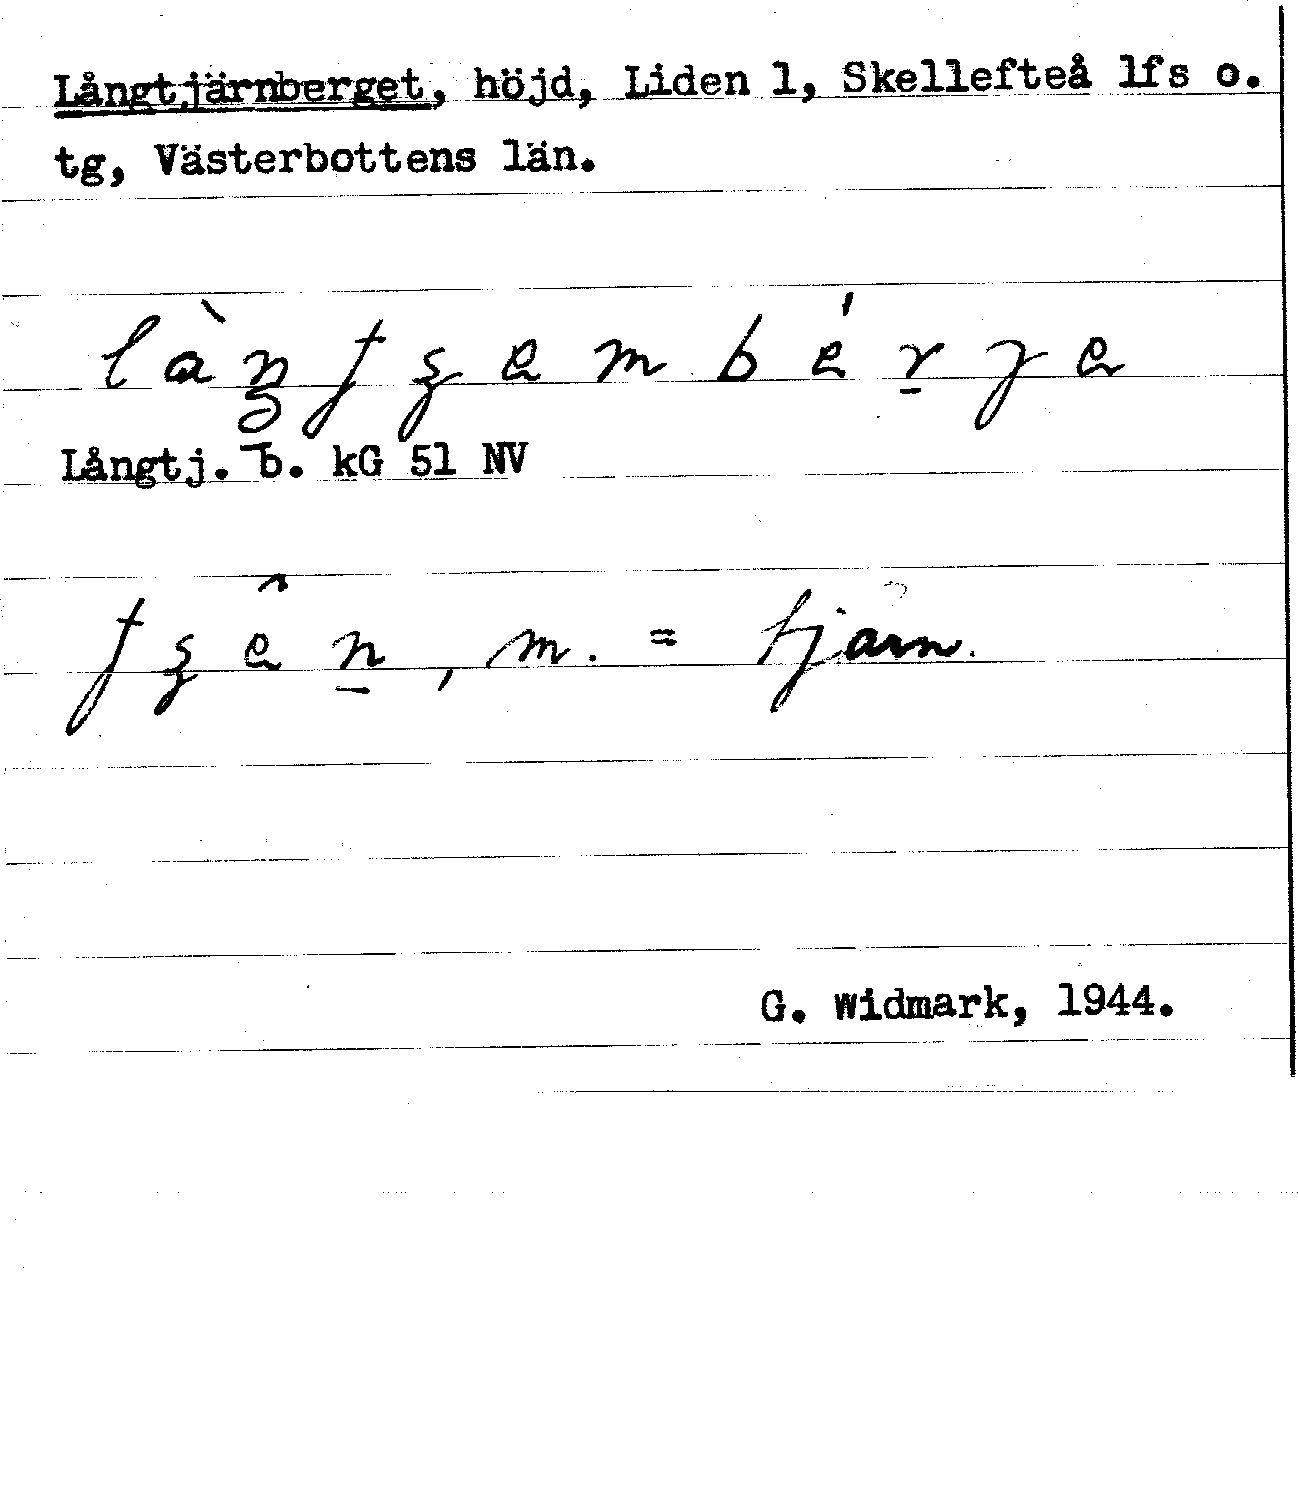 Långtjärnberget, höjd, Liden 1, Skellefteå lfs o.
tg, Västerbottens län.
Långtj. b. kG 51 NV
m. = tjärn.
G. Widmark, 1944.